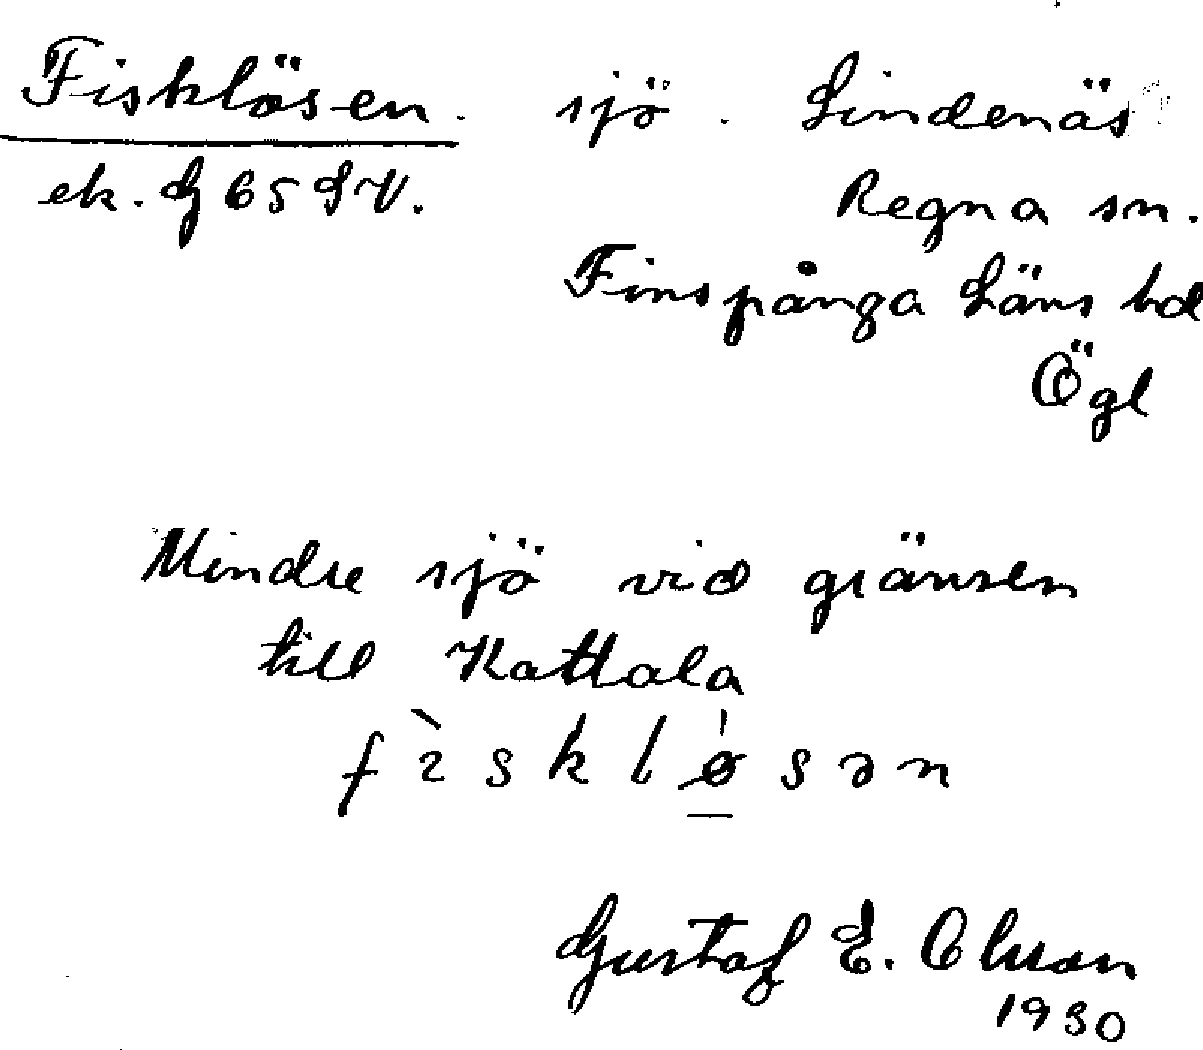 Fisklösen. sjö. Lindenäs
ek. G 65 SV. Regna sn.
Finspånga Läns hd
Ögl
Mindre sjö vid gränsen
till Kattala
fìskløsən
Gustaf E. Olsson
1930